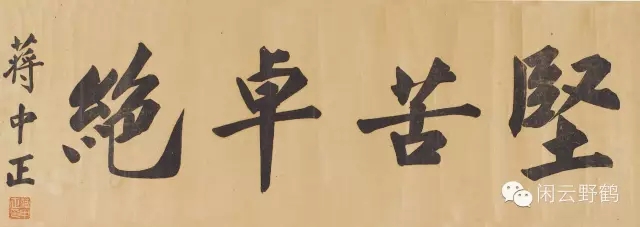 堅苦卓絕
蔣中正
闲云野鹤